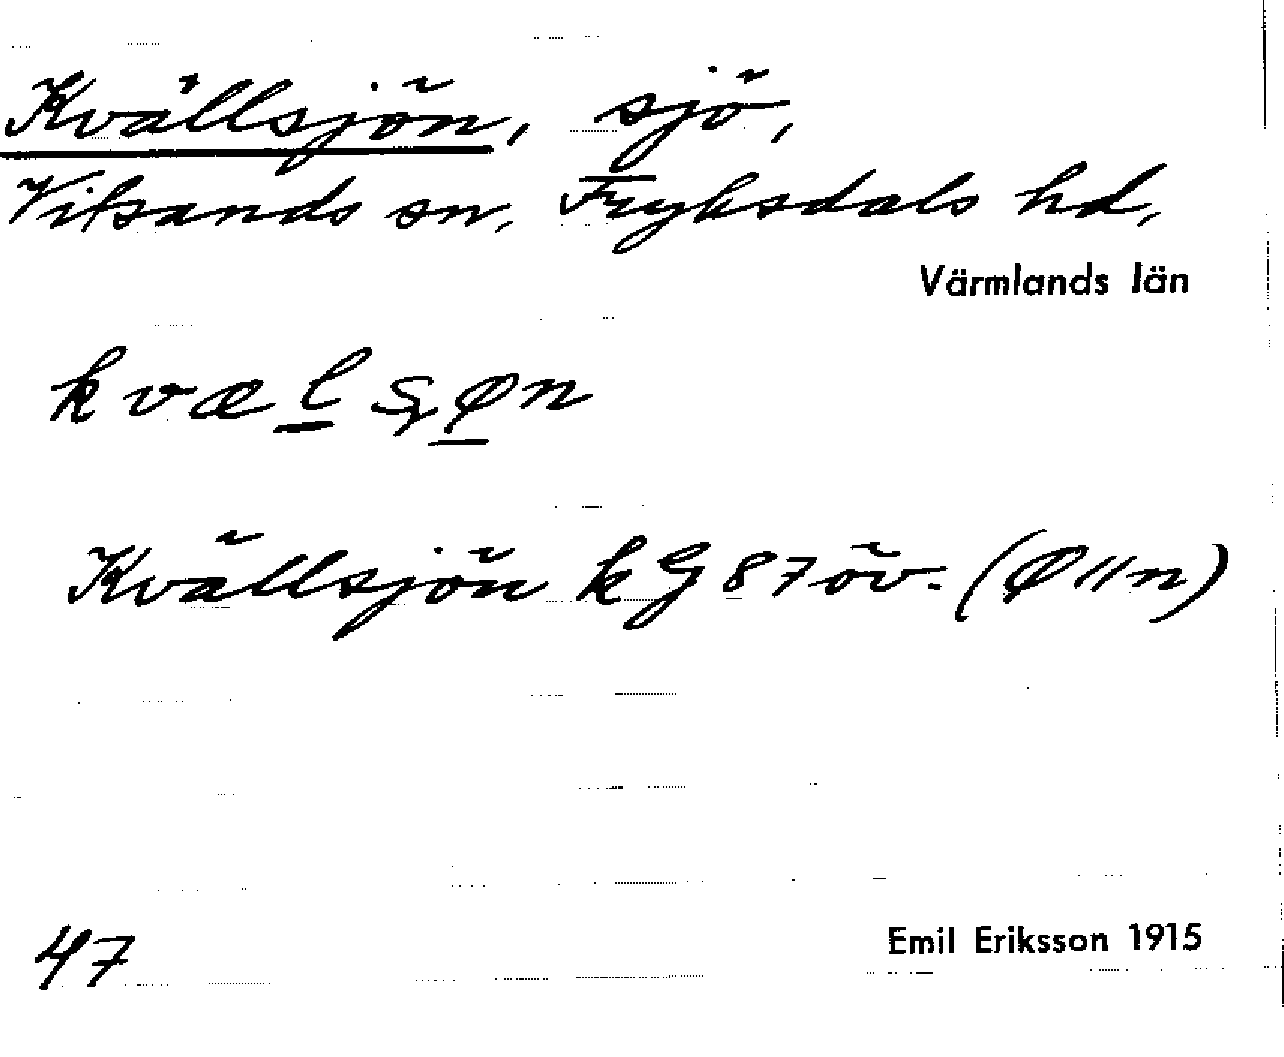 Kvällsjön, sjö,
Vitsands sn, Fryksdals hd,
Värmlands län
kvælʂøn
Kvällsjön kG 87 öv. (Ø 11 n)
47
Emil Eriksson 1915